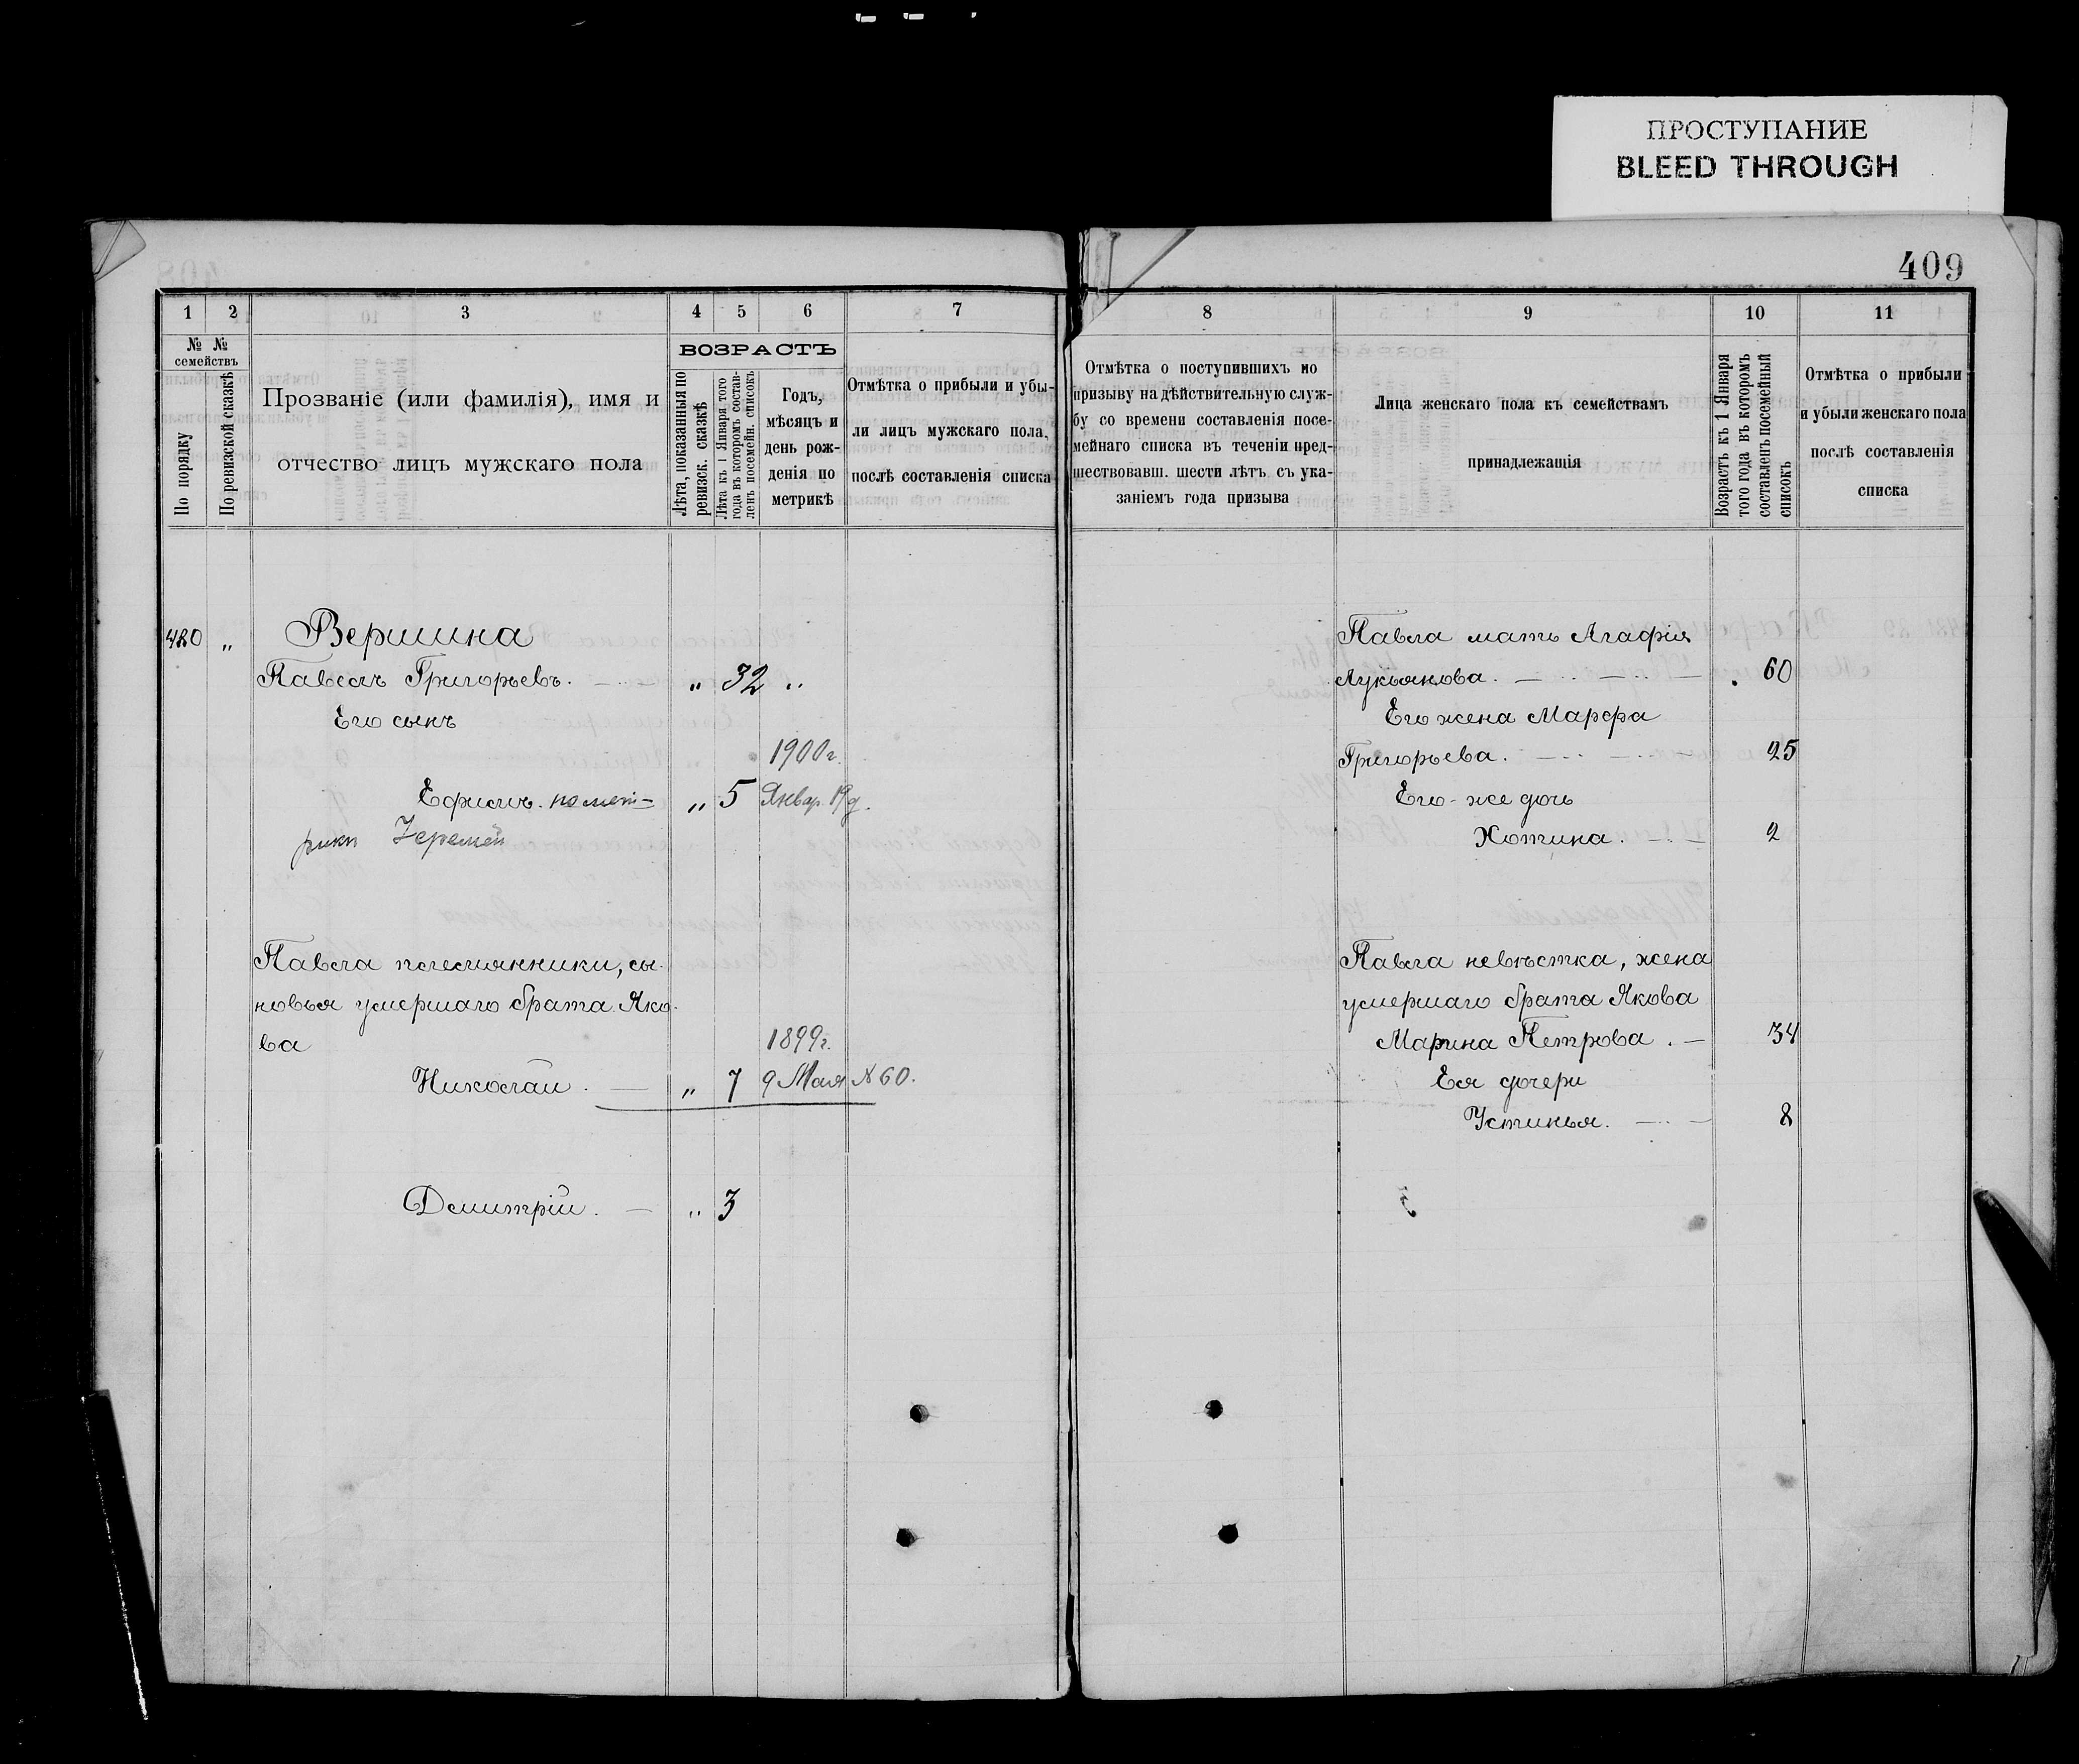 ПРОСТУПАНИЕ
BLEED THROUGH
409
1 2 3 4 5 6 7
№ № семействъ
По порядку
По ревизской сказкѣ
Прозваніе (или фамилія), имя и
отчество лицъ мужскаго пола
ВОЗРАСТЪ
Лѣта, показанныя по
ревизск. сказкѣ
Лѣта къ 1 Января того
года въ которомъ состав-
ленъ посемейн. списокъ
Годъ,
мѣсяцъ и
день рож-
денія по
метрикѣ
Отмѣтка о прибыли и убы-
ли лицъ мужскаго пола,
послѣ составленія списка
8 9 10 11
Отмѣтка о поступившихъ по
призыву на дѣйствительную служ-
бу со времени составленія посе-
мейнаго списка въ теченіи пред-
шествовавш. шести лѣтъ съ ука-
заніемъ года призыва
Лица женскаго пола къ семействамъ
принадлежащія
Возрастъ къ 1 Января
того года въ которомъ
составленъ посемейный
списокъ
Отмѣтка о прибыли
и убыли женскаго пола
послѣ составленія
списка
420 „ Вершина
Павелъ Григорьевъ. „ 32 „
Его сынъ
1900 г.
Ефимъ. по мет- „ 5 Январ. 19 д.
рики Іеремей
Павла племянники, сы-
новья умершаго брата Яко-
ва
1899 г.
Николай. „ 7 9 Мая № 60.
Димитрій. „ 3
Павла мать Агафія
Лукьянова. 60
Его жена Марфа
Григорьева. 25
Его-же дочь
Хотина. 2
Павла невѣстка, жена
умершаго брата Якова
Марина Петрова. 34
Ея дочери
Устинья. 8